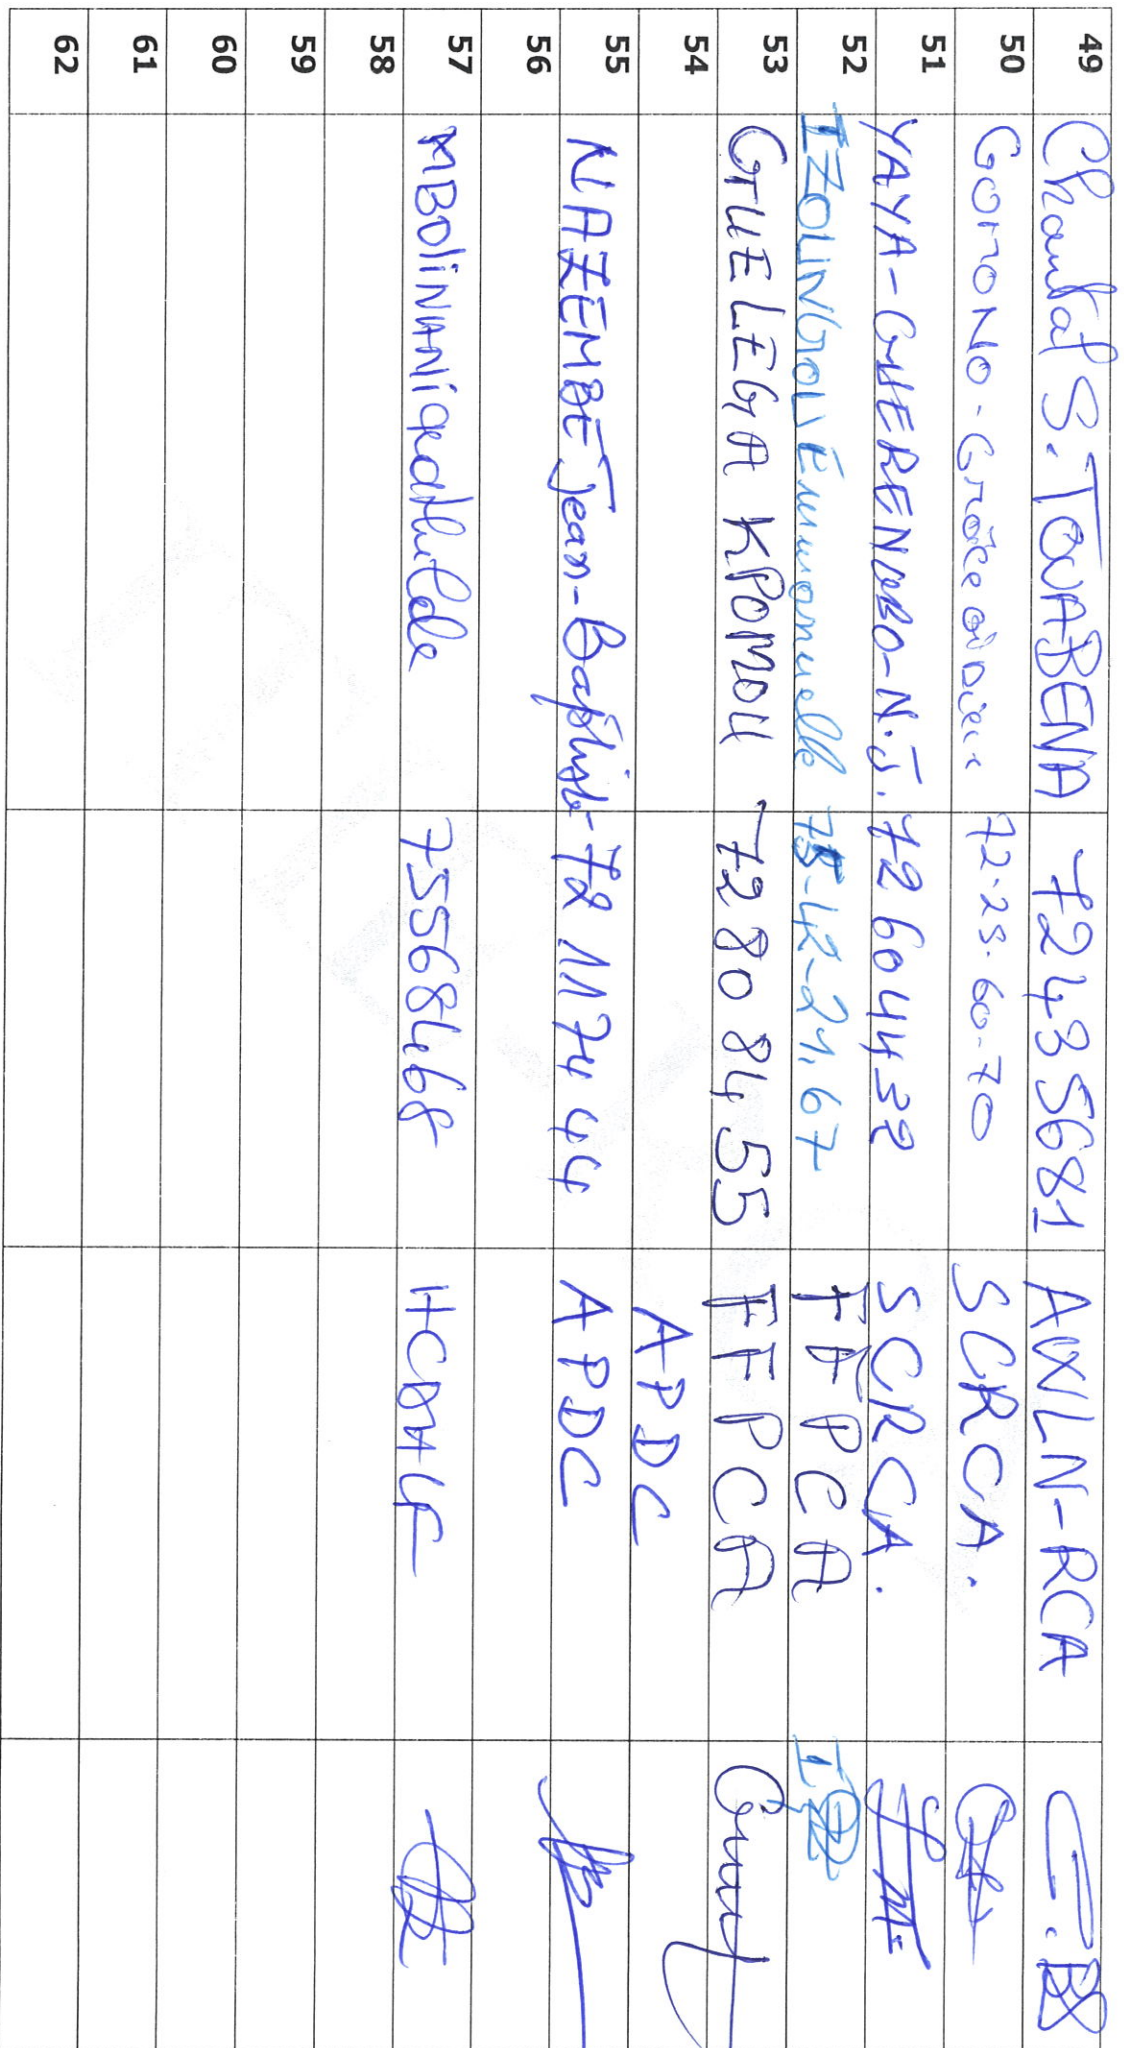 49 Chantal S. TOUABENA 72435681 AWLN-RCA
50 GOMONO-Grâce à Dieu 72-23-60-70 SCRCA.
51 YAYA-GUERENDBO-N.J. 72604432 SCRCA.
52 IZOUNGOU Emmanuelle 75-42-21.67 FFPCA
53 GUELEGA KPOMOU 72808455 FFPCA
54 APDC
55 NAZEMBE Jean-Baptiste 72117444 APDC
56
57 75568468
58
59
60
61
62